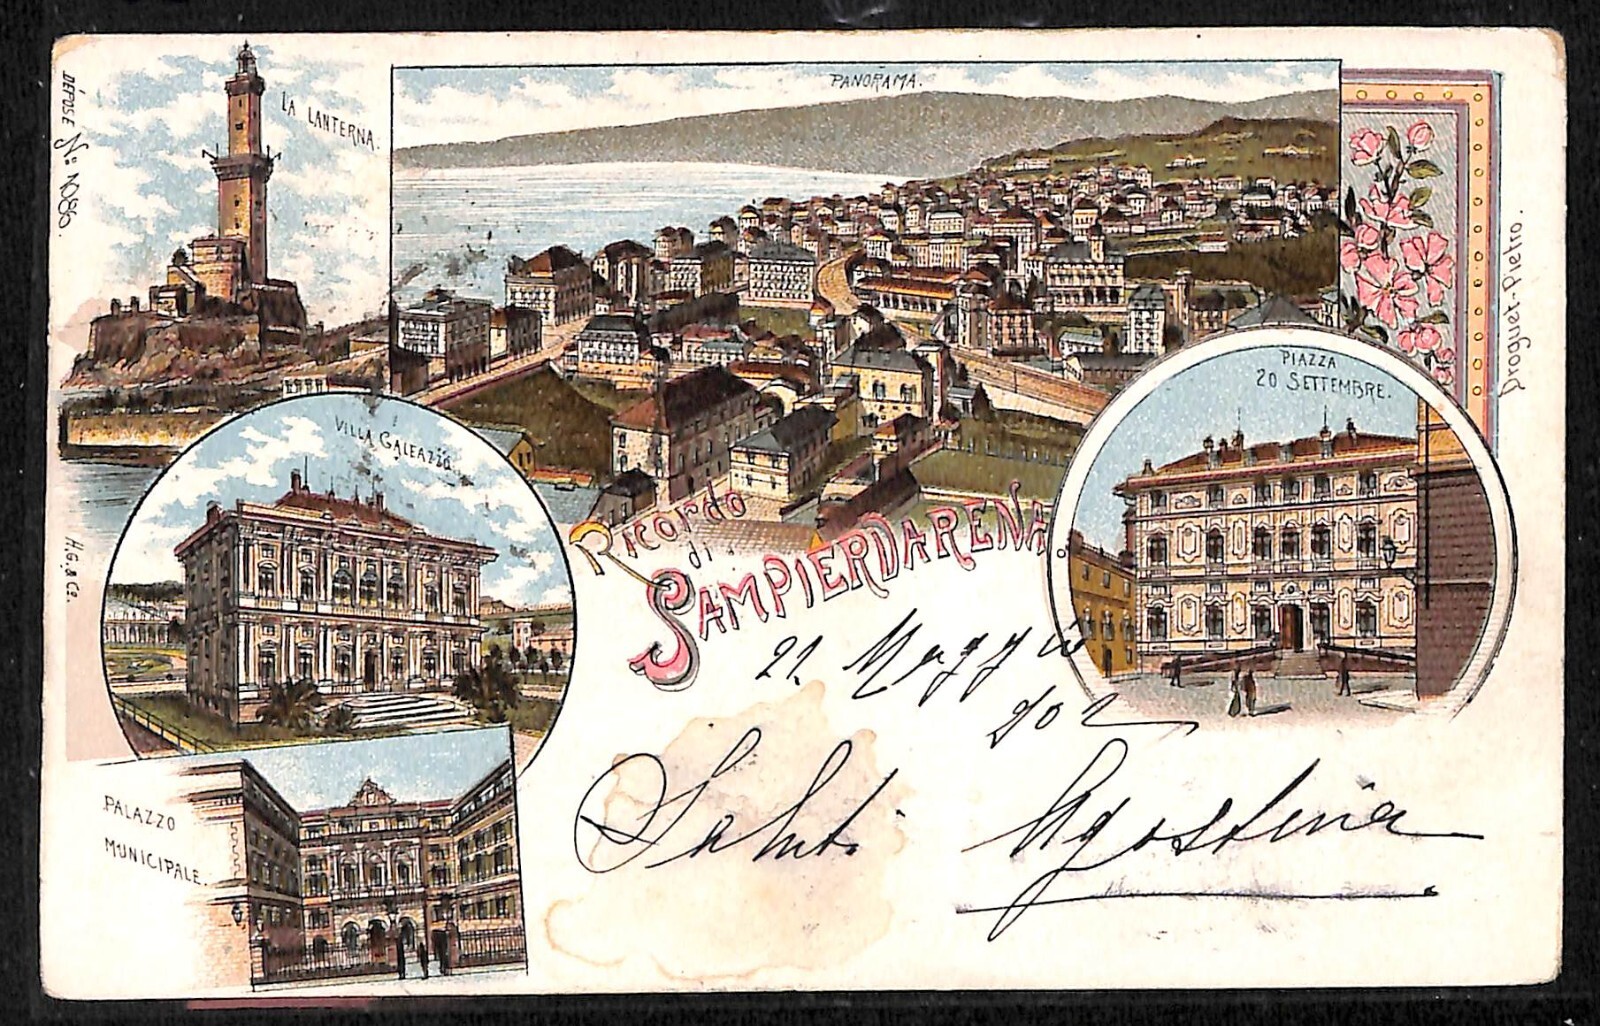 DÉPOSÉ No 1080.
LA LANTERNA.
PANORAMA.
Droguet-Pietro.
PIAZZA
20 SETTEMBRE.
VILLA GALEAZZO
H.G. & Co.
Ricordo
di
SAMPIERDARENA.
21 Maggio
902
Saluti Agostina
PALAZZO
MUNICIPALE.